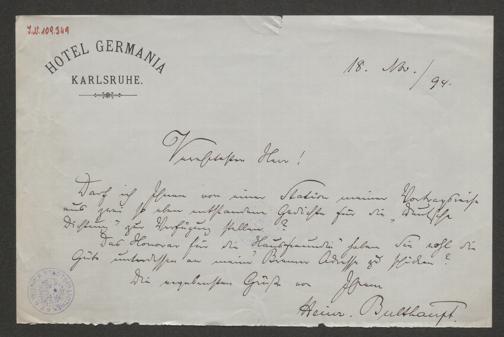 I.N. 109.349
HOTEL GERMANIA
KARLSRUHE.
18. Nov. / 94.
Verehrtester Herr!
Darf ich Ihnen von einer Station meiner Vortragsreise
aus zwei so eben entstandene Gedichte für die „Deutsche
Dichtung" zur Verfügung stellen?
Das Honorar für die „Hausfreunde" haben Sie wohl die
Güte unterdessen an meine Bremer Adresse zu schicken?
Die ergebensten Grüße von Ihrem
Heinr. Bulthaupt.